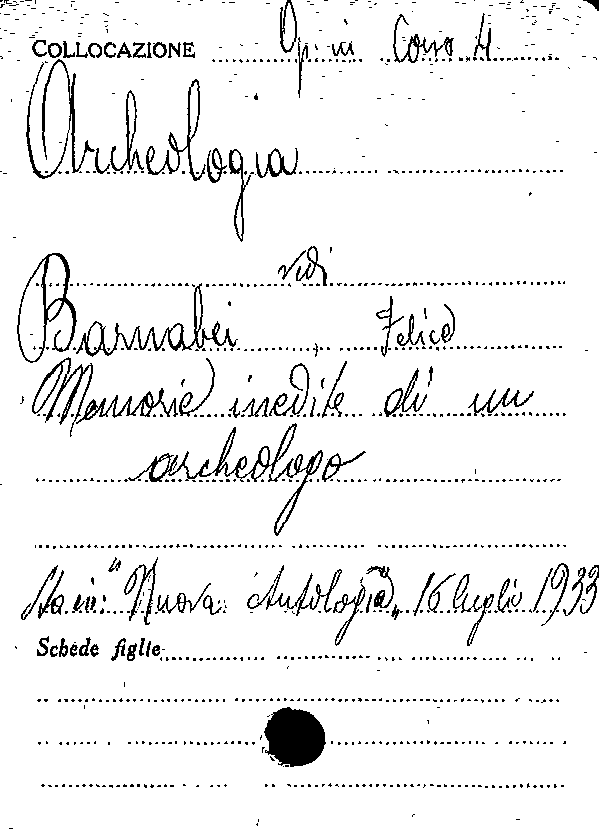 COLLOCAZIONE Op. in Corso H
Archeologia
vedi
Barnabei, Felice
Memorie inedite di un
archeologo
Sta in: "Nuova Antologia" 16 luglio 1933
Schede figlie